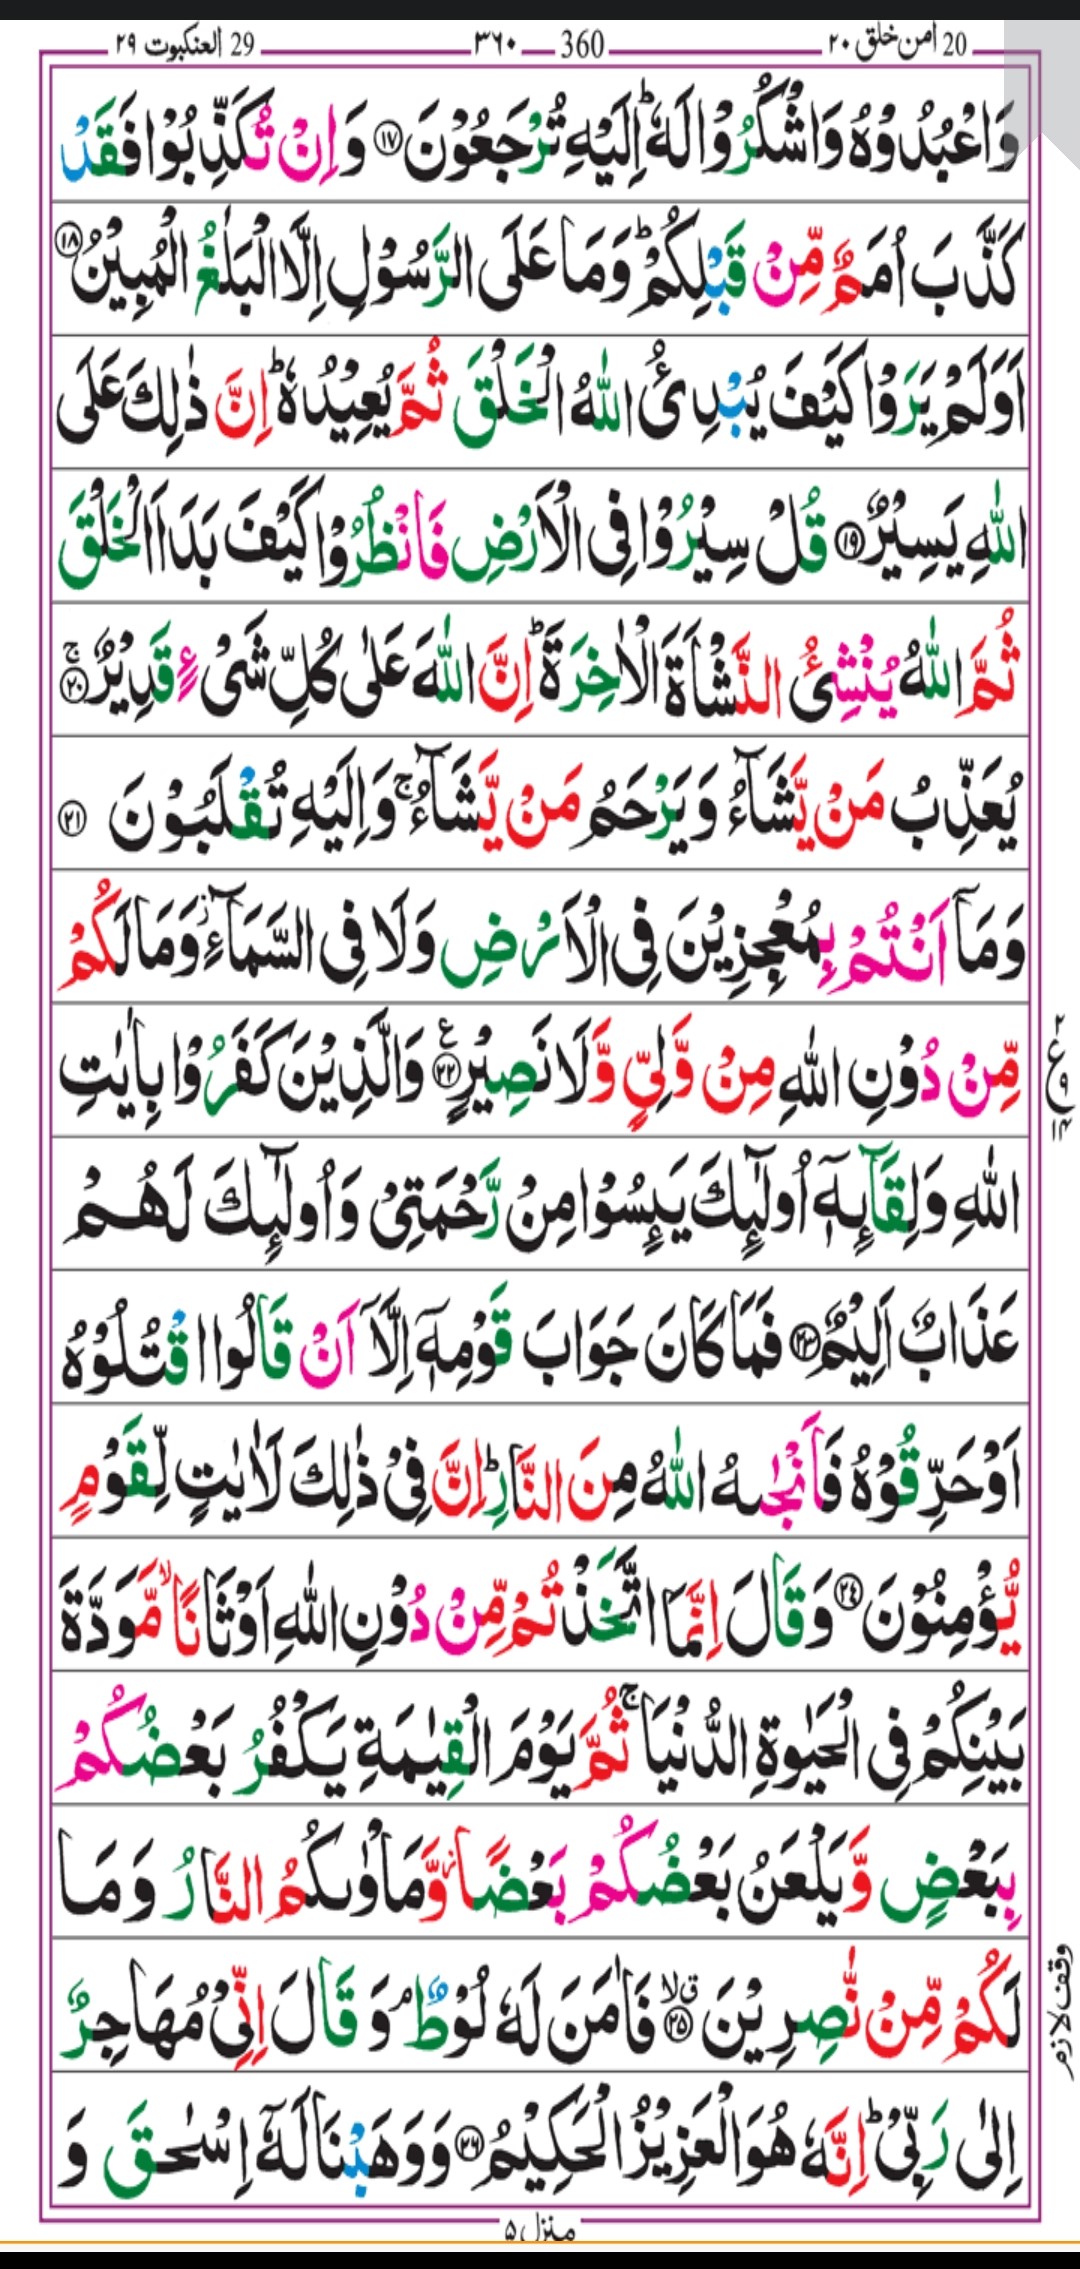 20 امن خلق ۲۰ 360 ۳۶۰ 29 العنكبوت ۲۹
وَاعْبُدُوْهُ وَاشْكُرُوْا لَهٗ ؕ اِلَيْهِ تُرْجَعُوْنَ ﴿۱۷﴾ وَ اِنْ تُكَذِّبُوْا فَقَدْ
كَذَّبَ اُمَمٌ مِّنْ قَبْلِكُمْ ؕ وَمَا عَلَى الرَّسُوْلِ اِلَّا الْبَلٰغُ الْمُبِيْنُ ﴿۱۸﴾
اَوَلَمْ يَرَوْا كَيْفَ يُبْدِئُ اللّٰهُ الْخَلْقَ ثُمَّ يُعِيْدُهٗ ؕ اِنَّ ذٰلِكَ عَلَى
اللّٰهِ يَسِيْرٌ ﴿۱۹﴾ قُلْ سِيْرُوْا فِى الْاَرْضِ فَانْظُرُوْا كَيْفَ بَدَاَ الْخَلْقَ
ثُمَّ اللّٰهُ يُنْشِئُ النَّشْاَةَ الْاٰخِرَةَ ؕ اِنَّ اللّٰهَ عَلٰى كُلِّ شَىْءٍ قَدِيْرٌ ۚ﴿۲۰﴾
يُعَذِّبُ مَنْ يَّشَآءُ وَيَرْحَمُ مَنْ يَّشَآءُ ۚ وَاِلَيْهِ تُقْلَبُوْنَ ﴿۲۱﴾
وَمَاۤ اَنْتُمْ بِمُعْجِزِيْنَ فِى الْاَرْضِ وَلَا فِى السَّمَآءِ ؗ وَمَا لَكُمْ
مِّنْ دُوْنِ اللّٰهِ مِنْ وَّلِىٍّ وَّلَا نَصِيْرٍ ﴿۲۲﴾ ع وَالَّذِيْنَ كَفَرُوْا بِاٰيٰتِ
اللّٰهِ وَلِقَآئِهٖۤ اُولٰٓئِكَ يَئِسُوْا مِنْ رَّحْمَتِىْ وَاُولٰٓئِكَ لَهُمْ
عَذَابٌ اَلِيْمٌ ﴿۲۳﴾ فَمَا كَانَ جَوَابَ قَوْمِهٖۤ اِلَّاۤ اَنْ قَالُوا اقْتُلُوْهُ
اَوْ حَرِّقُوْهُ فَاَنْجٰىهُ اللّٰهُ مِنَ النَّارِ ؕ اِنَّ فِىْ ذٰلِكَ لَاٰيٰتٍ لِّقَوْمٍ
يُّؤْمِنُوْنَ ﴿۲۴﴾ وَقَالَ اِنَّمَا اتَّخَذْتُمْ مِّنْ دُوْنِ اللّٰهِ اَوْثَانًا ۙ مَّوَدَّةَ
بَيْنِكُمْ فِى الْحَيٰوةِ الدُّنْيَا ۚ ثُمَّ يَوْمَ الْقِيٰمَةِ يَكْفُرُ بَعْضُكُمْ
بِبَعْضٍ وَّيَلْعَنُ بَعْضُكُمْ بَعْضًا ؗ وَّمَاْوٰىكُمُ النَّارُ وَمَا
لَكُمْ مِّنْ نّٰصِرِيْنَ ﴿۲۵﴾ ق لا فَاٰمَنَ لَهٗ لُوْطٌ ۘ وَقَالَ اِنِّىْ مُهَاجِرٌ
اِلٰى رَبِّىْ ؕ اِنَّهٗ هُوَ الْعَزِيْزُ الْحَكِيْمُ ﴿۲۶﴾ وَوَهَبْنَا لَهٗۤ اِسْحٰقَ وَ
منزل ۵
۲ ع ۹ ۱۴
وقف لازم